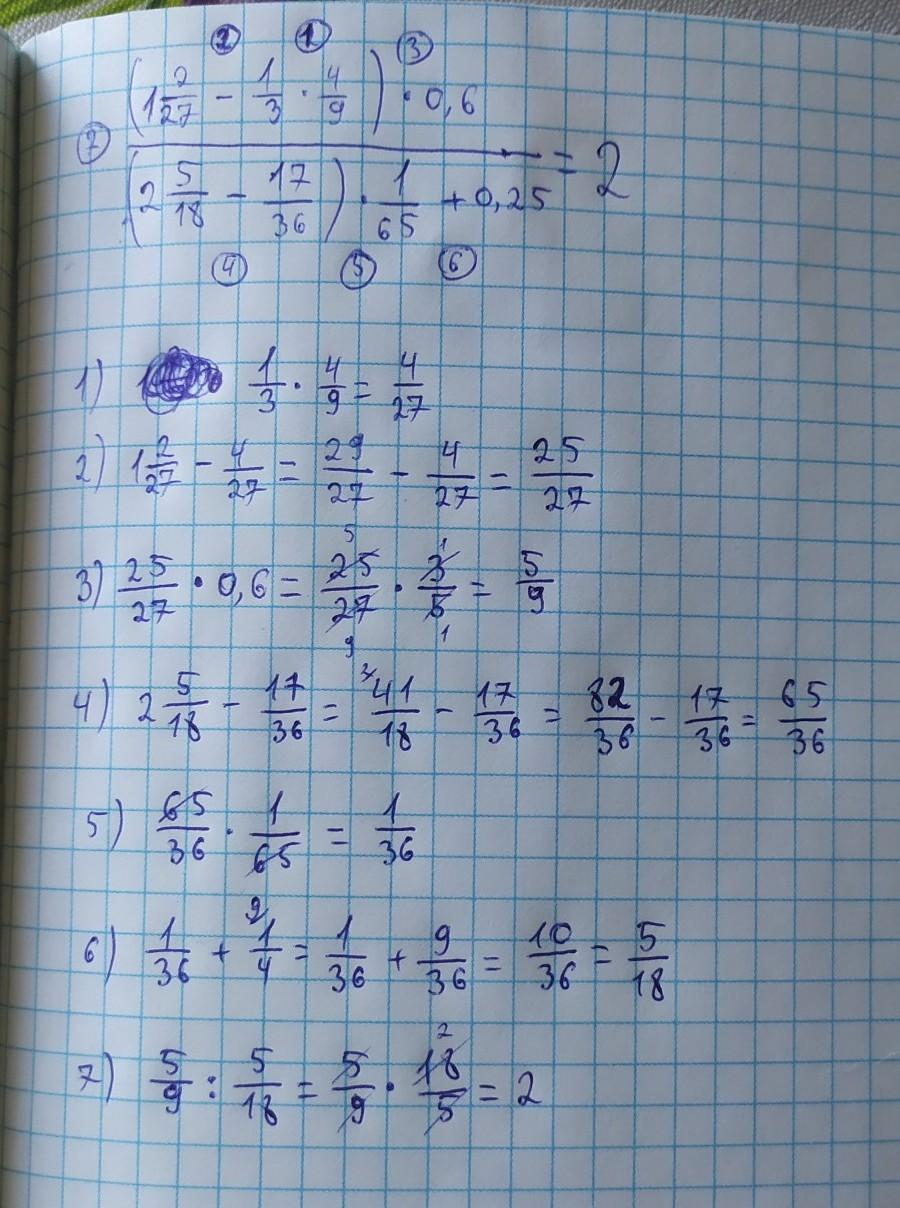 ② ① ③
(1 2/27 - 1/3 · 4/9) · 0,6
⑦ ――― = 2
(2 5/18 - 17/36) · 1/65 + 0,25
④ ⑤ ⑥
1) 1/3 · 4/9 = 4/27
2) 1 2/27 - 4/27 = 29/27 - 4/27 = 25/27
3) 25/27 · 0,6 = 25/27 · 3/5 = 5/9
4) 2 5/18 - 17/36 = 41/18 - 17/36 = 82/36 - 17/36 = 65/36
5) 65/36 · 1/65 = 1/36
6) 1/36 + 1/4 = 1/36 + 9/36 = 10/36 = 5/18
7) 5/9 : 5/18 = 5/9 · 18/5 = 2